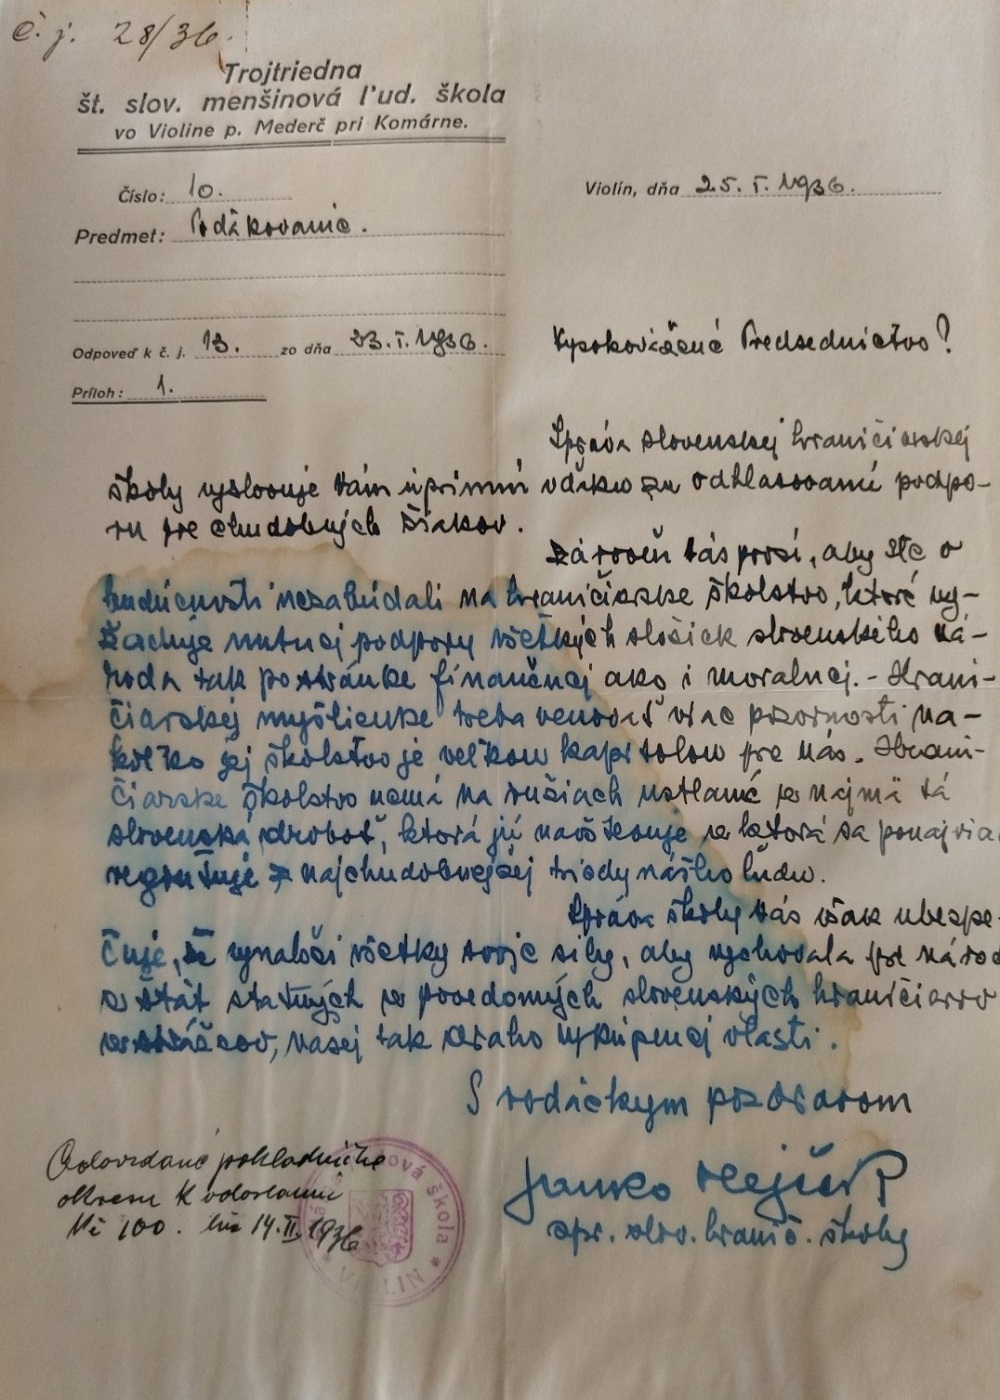 č. j. 28/36.
Trojtriedna
št. slov. menšinová ľud. škola
vo Violine p. Mederč pri Komárne.
Číslo: 10.
Violín, dňa 25. I. 1936.
Predmet: Poďakovanie.
Odpoveď k č. j. 13. zo dňa 23. I. 1936.
Príloh: 1.
Vysokovážené Predsedníctvo!
Správa slovenskej hraničiarskej
školy vyslovuje Vám úprimnú vďaku za odhlasovanú podpo-
ru pre chudobných žiakov.
Zároveň Vás prosí, aby ste v
budúcnosti nezabúdali na hraničiarske školstvo, ktoré vy-
žaduje nutnej podpory všetkých složiek slovenského ná-
roda tak po stránke finančnej ako i moralnej. - Hrani-
čiarskej myšlienke treba venovať viac pozornosti na-
koľko jej školstvo je veľkou kapitolou pre nás. Hrani-
čiarske školstvo nemá na ružiach ustlané a najmä tá
slovenská droboť, ktorá jú navštevuje a ktorá sa ponajviac
regrutuje z najchudobnejšej triedy nášho ľudu.
Správa školy Vás však ubezpe-
čuje, že vynaloží všetky svoje sily, aby vychovala pre národ
a štát statných a povedomých slovenských hraničiarov
a strážcov, našej tak draho vykúpenej vlasti.
S rodáckym pozdravom
Janko
spr. slov. hranič. školy
Odovzdané pokladničke
okrem k odoslaniu
Kč 100. dňa 14. II. 1936
nová škola
VIOLIN